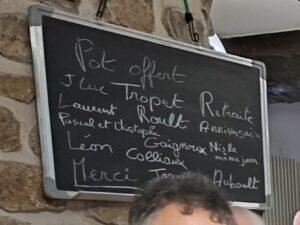 Pot offert
J Luc Tropet Retraite
Laurent Roult Anniversaire
Pascal et Chstophe Gaignoux Nés le
Léon Colliaux même jour
Merci Aubault